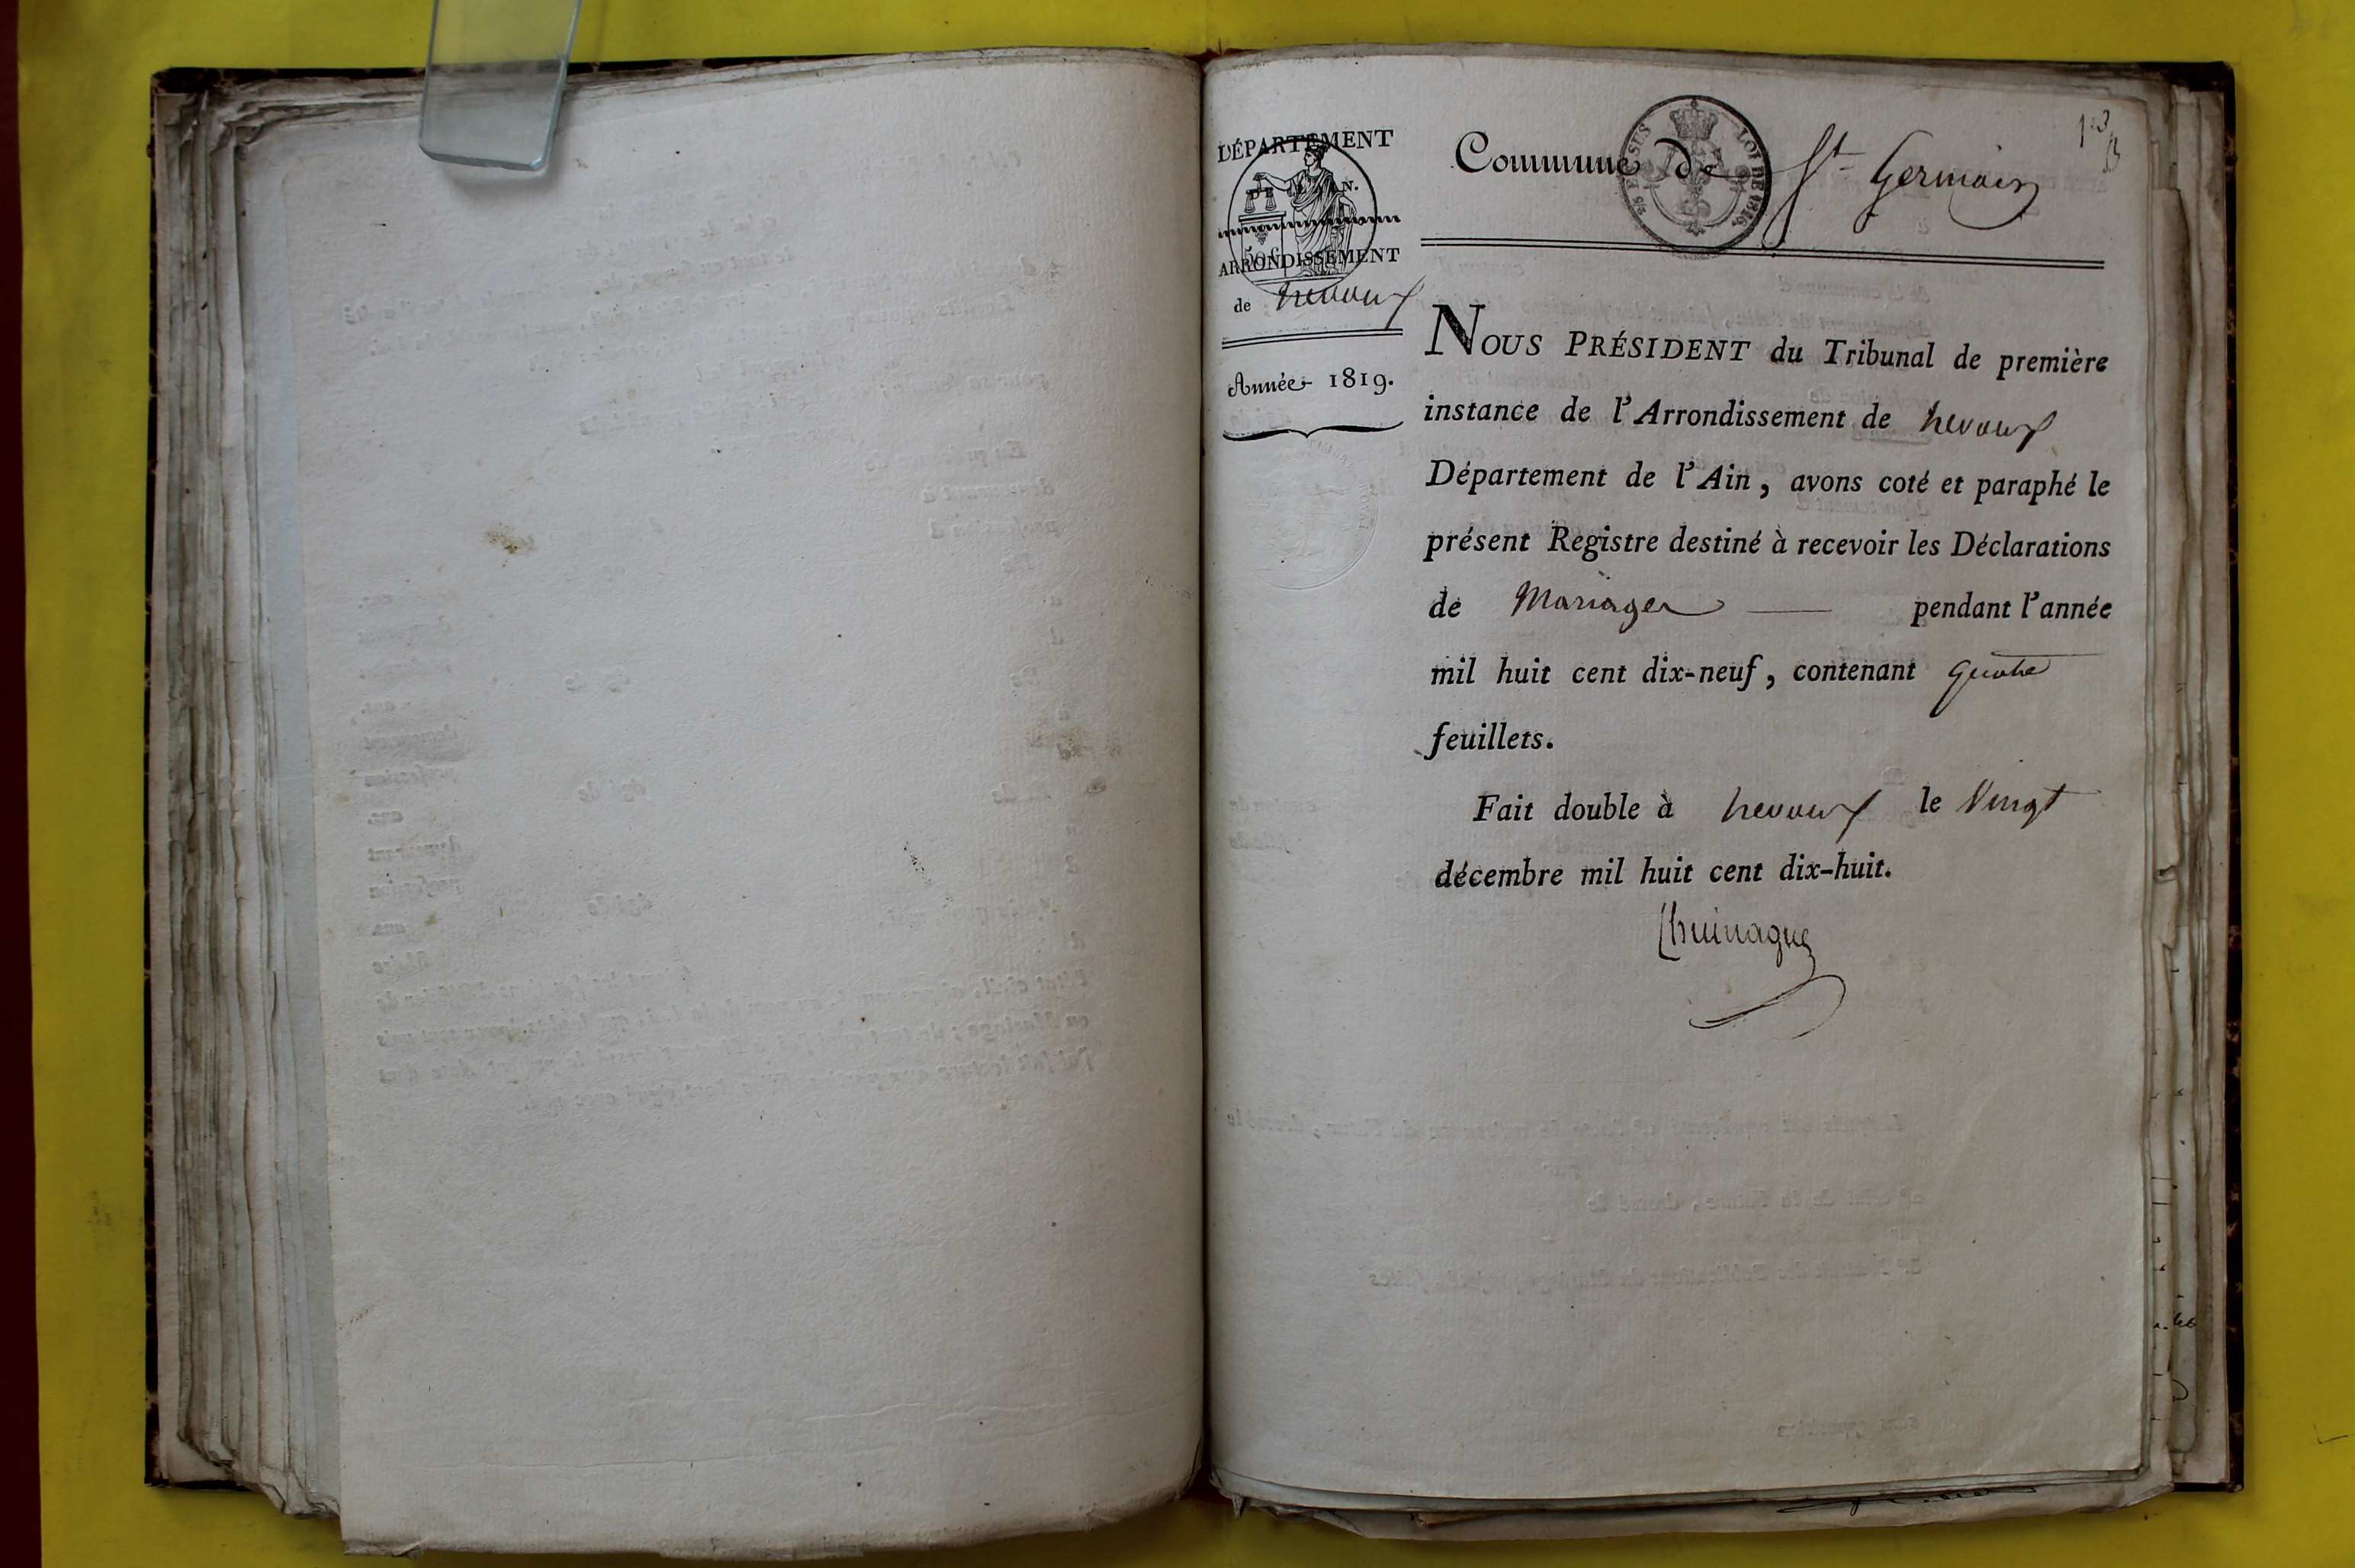 DÉPARTEMENT
DE L'AIN.
ARRONDISSEMENT
de Trevoux
Année 1819.
Commune de St Germain
EN SUS
LOI DE 1816.
NOUS PRÉSIDENT du Tribunal de première
instance de l'Arrondissement de Trevoux
Département de l'Ain, avons coté et paraphé le
présent Registre destiné à recevoir les Déclarations
de Mariages pendant l'année
mil huit cent dix-neuf, contenant quatre
feuillets.
Fait double à Trevoux le Vingt
décembre mil huit cent dix-huit.